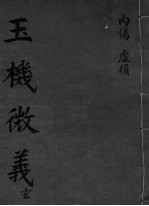 內傷 虛損
玉機微義